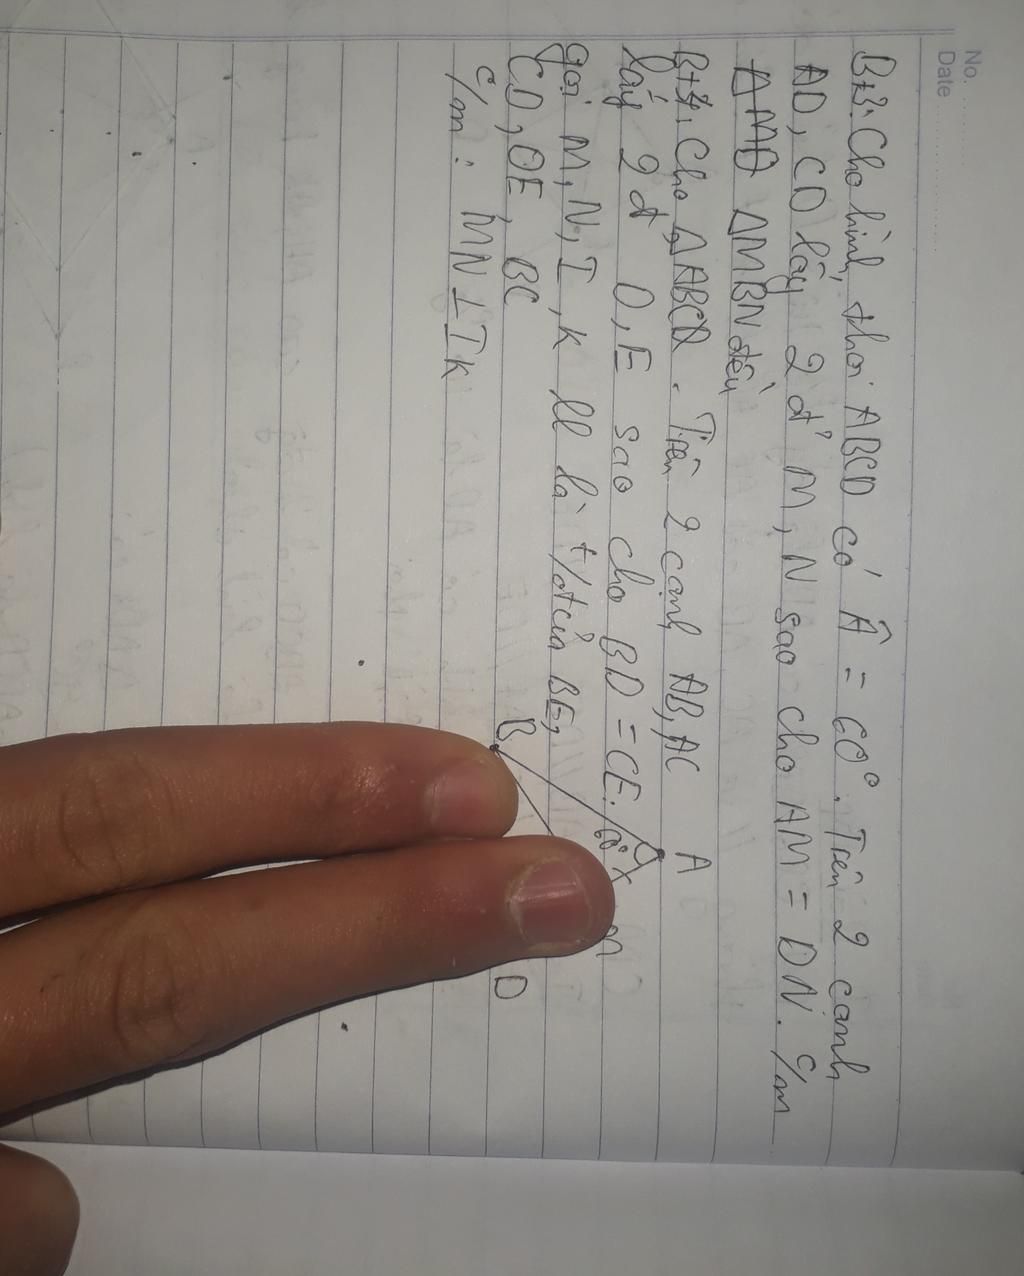 No.
Date
Bt3: Cho hình thoi ABCD có Â = 60°. Trên 2 cạnh
AD, CD lấy 2 đ' M, N sao cho AM = DN. c/m
ΔMBN đều
Bt4. Cho ΔABC. Trên 2 cạnh AB, AC
lấy 2 đ' D, E sao cho BD = CE.
gọi M, N, I, K ll là t/đ của BE,
CD, DE, BC
c/m: MN ⊥ IK
A
60°
M
B
D